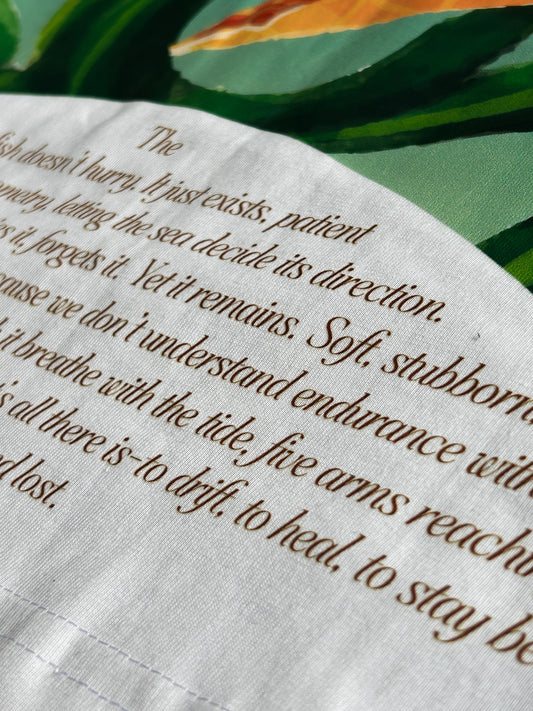 The
fish doesn't hurry. It just exists, patient
ometry, letting the sea decide its direction.
s it, forgets it. Yet it remains. Soft, stubborn,
cause we don't understand endurance with
it breathe with the tide, five arms reachin
's all there is-to drift, to heal, to stay be
d lost.